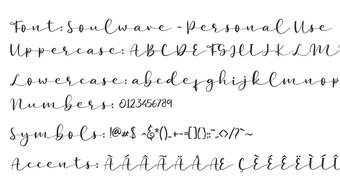 Font: Soulwave - Personal Use
Uppercase: ABCDEFGHIJKLM
Lowercase: abcdefghijklmnop
Numbers: 0123456789
Symbols: !@#$ ^&*()_+-=[]{};:",.<>/?`~
Accents: ÀÁÂÃÄÅÆ ÇÈÉÊËÌÍÎ